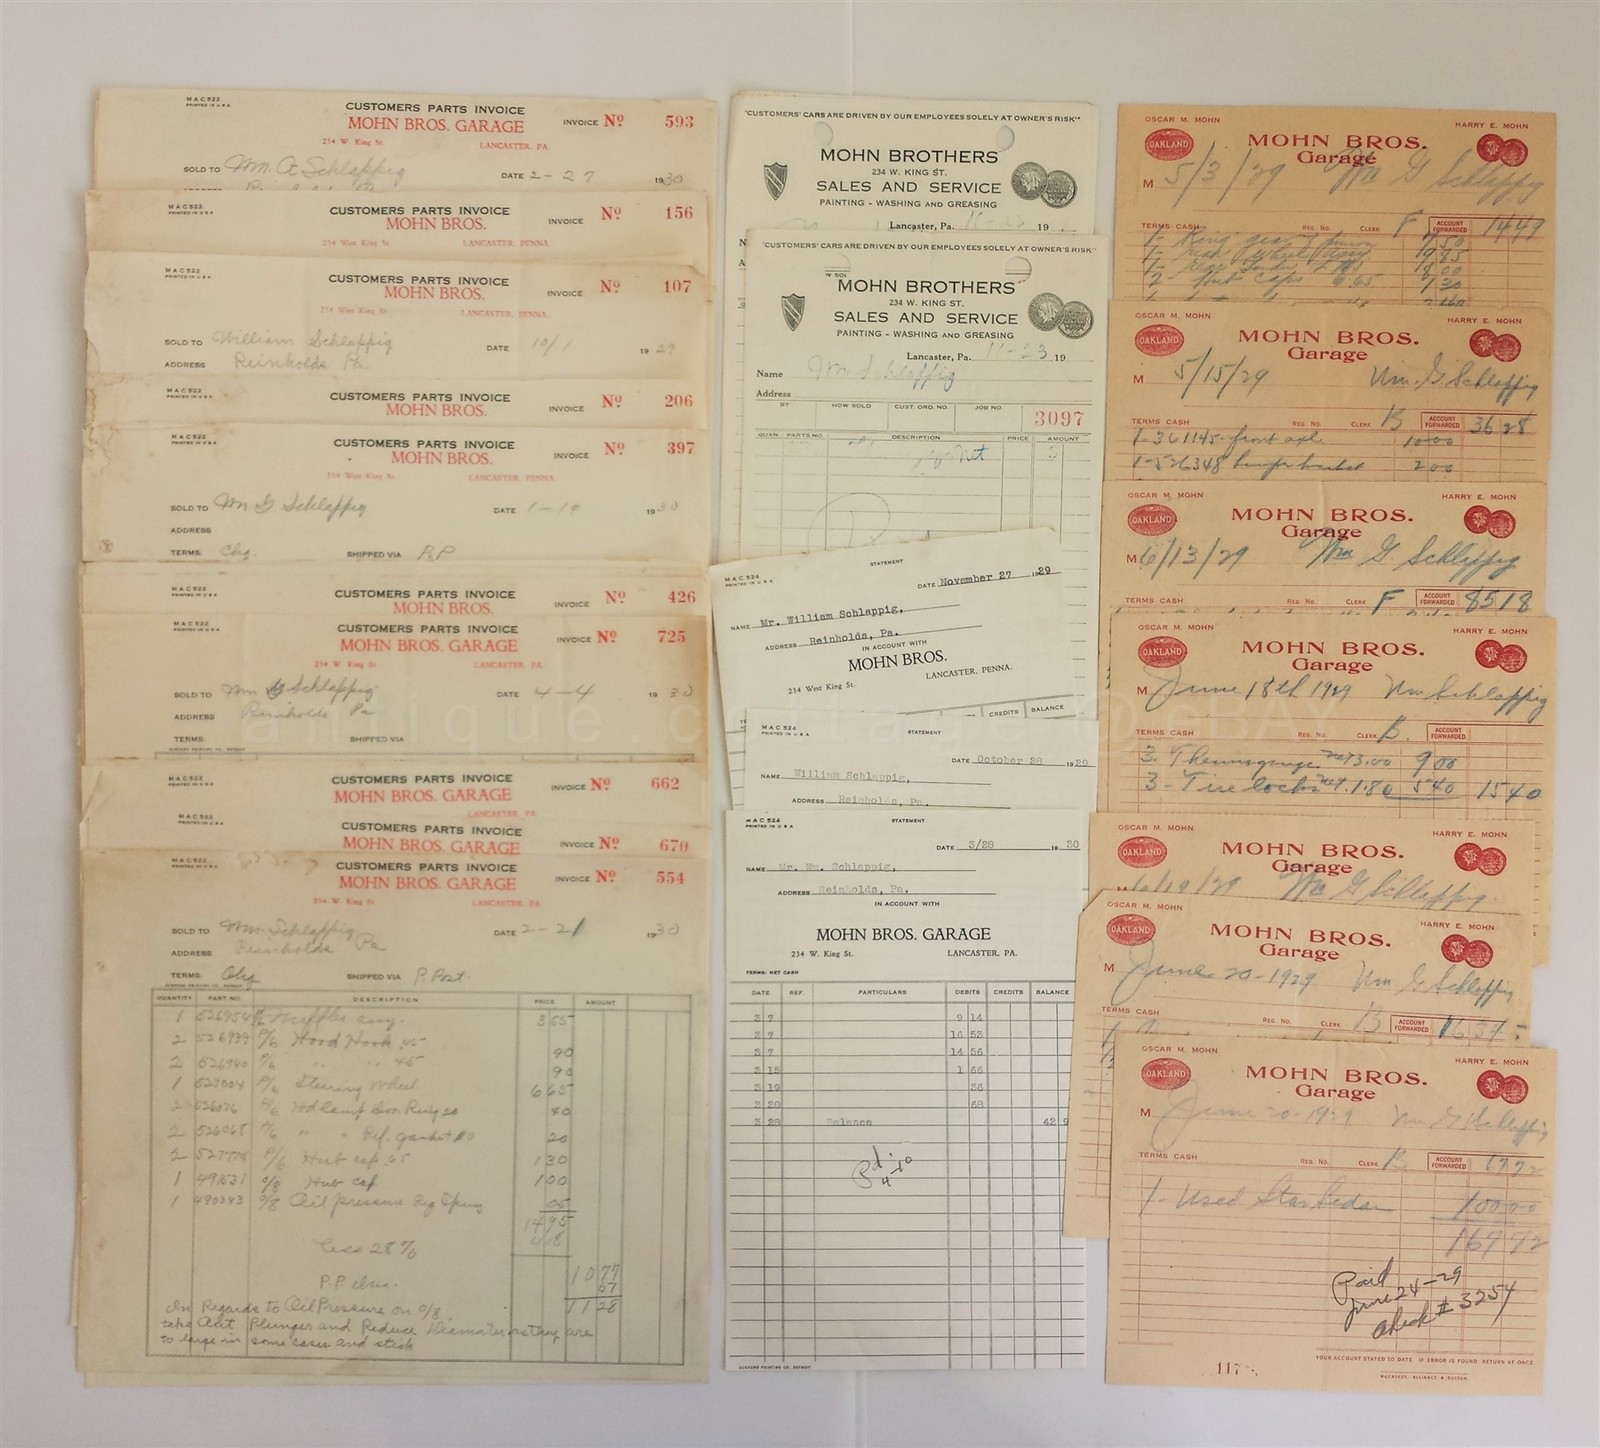 MAC 522
PRINTED IN U S A
CUSTOMERS PARTS INVOICE
MOHN BROS. GARAGE
INVOICE Nº 593
234 W. King St. LANCASTER, PA.
SOLD TO Wm. G Schlappig DATE 2-27 1930
MAC 522
PRINTED IN U S A
CUSTOMERS PARTS INVOICE
MOHN BROS.
INVOICE Nº 156
234 West King St. LANCASTER, PENNA.
MAC 522
PRINTED IN U S A
CUSTOMERS PARTS INVOICE
MOHN BROS.
INVOICE Nº 107
234 West King St. LANCASTER, PENNA.
SOLD TO William Schlappig DATE 10/1 1929
ADDRESS Reinholds Pa
MAC 522
PRINTED IN U S A
CUSTOMERS PARTS INVOICE
MOHN BROS.
INVOICE Nº 206
MAC 522
PRINTED IN U S A
CUSTOMERS PARTS INVOICE
MOHN BROS.
INVOICE Nº 397
234 West King St. LANCASTER, PENNA.
SOLD TO Wm G Schlappig DATE 1-19 1930
ADDRESS
TERMS: Chg. SHIPPED VIA P.P
MAC 522
PRINTED IN U S A
CUSTOMERS PARTS INVOICE
MOHN BROS.
INVOICE Nº 426
MAC 522
PRINTED IN U S A
CUSTOMERS PARTS INVOICE
MOHN BROS. GARAGE
INVOICE Nº 725
234 W King St. LANCASTER, PA.
SOLD TO Wm G Schlappig DATE 4-4 1930
ADDRESS Reinholds Pa
TERMS: SHIPPED VIA
MAC 522
PRINTED IN U S A
CUSTOMERS PARTS INVOICE
MOHN BROS. GARAGE
INVOICE Nº 662
LANCASTER PA.
MAC 522
PRINTED IN U S A
CUSTOMERS PARTS INVOICE
MOHN BROS. GARAGE
INVOICE Nº 670
MAC 522
PRINTED IN U S A
CUSTOMERS PARTS INVOICE
MOHN BROS. GARAGE
INVOICE Nº 554
234 W. King St. LANCASTER, PA.
SOLD TO Wm. Schlappig DATE 2-21 1930
ADDRESS Reinholds Pa
TERMS: Chg SHIPPED VIA P. Post.
QUANTITY PART NO. DESCRIPTION PRICE AMOUNT
1 526954 P/6 Muffler assy. 3 65
2 526939 P/6 Hood Hook .45 90
2 526940 P/6 " " 45 90
1 527004 P/6 Steering Wheel 6 65
2 526076 P/6 Hd lamp Door Ring 20 40
2 526068 P/6 " " Ref. gasket 10 20
2 527778 P/6 Hub cap .65 1 30
1 491531 O/8 Hub cap 1 00
1 490343 O/8 Oil pressure Reg Spring 05
14 95
less 28 % 4 18
P.P. & Ins. 10 77
11 28
In Regards to Oil Pressure on O/8,
take Out Plunger and Reduce Diameter as they are
to large in some cases and stick
"CUSTOMERS' CARS ARE DRIVEN BY OUR EMPLOYEES SOLELY AT OWNER'S RISK"
MOHN BROTHERS
234 W. KING ST.
SALES AND SERVICE
PAINTING - WASHING AND GREASING
Lancaster, Pa. 11-23 19
"CUSTOMERS' CARS ARE DRIVEN BY OUR EMPLOYEES SOLELY AT OWNER'S RISK"
W 501
MOHN BROTHERS
234 W. KING ST.
SALES AND SERVICE
PAINTING - WASHING AND GREASING
Lancaster, Pa. 11-23 19
Name Wm Schlappig
Address
BY HOW SOLD CUST. ORD. NO. JOB NO. 3097
QUAN. PARTS NO. DESCRIPTION PRICE AMOUNT
Net
MAC 524
PRINTED IN U S A
STATEMENT
DATE November 27 1929
NAME Mr. William Schlappig,
ADDRESS Reinholds, Pa.
IN ACCOUNT WITH
MOHN BROS.
234 West King St. LANCASTER, PENNA.
CREDITS BALANCE
MAC 524
PRINTED IN U S A
STATEMENT
DATE October 28 1929
NAME William Schlappig,
ADDRESS Reinholds, Pa.
MAC 524
PRINTED IN U S A
STATEMENT
DATE 3/28 1930
NAME Mr. Wm. Schlappig,
ADDRESS Reinholds, Pa.
IN ACCOUNT WITH
MOHN BROS. GARAGE
234 W. King St. LANCASTER, PA.
TERMS: NET CASH
DATE REF. PARTICULARS DEBITS CREDITS BALANCE
3 7 9 14
3 7 16 53
3 7 14 56
3 15 1 66
3 19 36
3 20 68
3 28 Balance 42 9
Pd. 4-10
DUNFORD PRINTING CO., DETROIT
OSCAR M. MOHN HARRY E. MOHN
OAKLAND
MOHN BROS.
Garage
M 5/3/29 Wm G Schlappig
TERMS CASH REG. NO. CLERK F ACCOUNT FORWARDED 1449
1- Ring gear & pinion 7.50
2- Hub caps 0.65 1 30
OSCAR M. MOHN HARRY E. MOHN
OAKLAND
MOHN BROS.
Garage
M 5/15/29 Wm. G Schlappig
TERMS CASH REG. NO. CLERK B ACCOUNT FORWARDED 36 28
1-361145-front axle 10 00
1-526348 bumper bracket 2 00
OSCAR M. MOHN HARRY E. MOHN
OAKLAND
MOHN BROS.
Garage
M 6/13/29 Wm G. Schlappig
TERMS CASH REG. No. CLERK F ACCOUNT FORWARDED 8518
OSCAR M. MOHN HARRY E. MOHN
OAKLAND
MOHN BROS.
Garage
M June 18th 1929 Wm Schlappig
TERMS CASH REG. No. CLERK B. ACCOUNT FORWARDED
3. Thermogauges net 3.00 9 00
3 - Tire locks net 1.80 5 40 15 40
OSCAR M. MOHN HARRY E. MOHN
OAKLAND
MOHN BROS.
Garage
M 6/19/29 Wm G Schlappig
OSCAR M. MOHN HARRY E. MOHN
OAKLAND
MOHN BROS.
Garage
M June 20-1929 Wm G Schlappig
TERMS CASH REG. No. CLERK B ACCOUNT FORWARDED
OSCAR M. MOHN HARRY E. MOHN
OAKLAND
MOHN BROS.
Garage
M June 20-1929 Wm G Schlappig
TERMS CASH REG. No. CLERK B ACCOUNT FORWARDED
1 - Used Star Sedan 100 00
167 72
Paid
June 24-29
Check # 3254
YOUR ACCOUNT STATED TO DATE. IF ERROR IS FOUND, RETURN AT ONCE
117
MCCASKEY, ALLIANCE & BOSTON